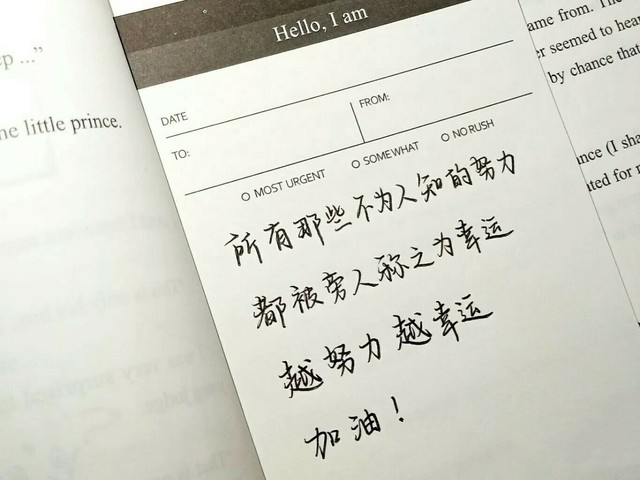 ep ..."
ne little prince.
Hello, I am
DATE
FROM:
TO:
MOST URGENT
SOMEWHAT
NO RUSH
所有那些不为人知的努力
都被旁人称之为幸运
越努力越幸运
加油！
ame from. The
er seemed to hear
by chance that
nce (I sha
ted for